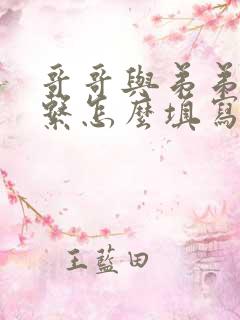 哥哥與弟弟
繫怎麼填寫
王藍田